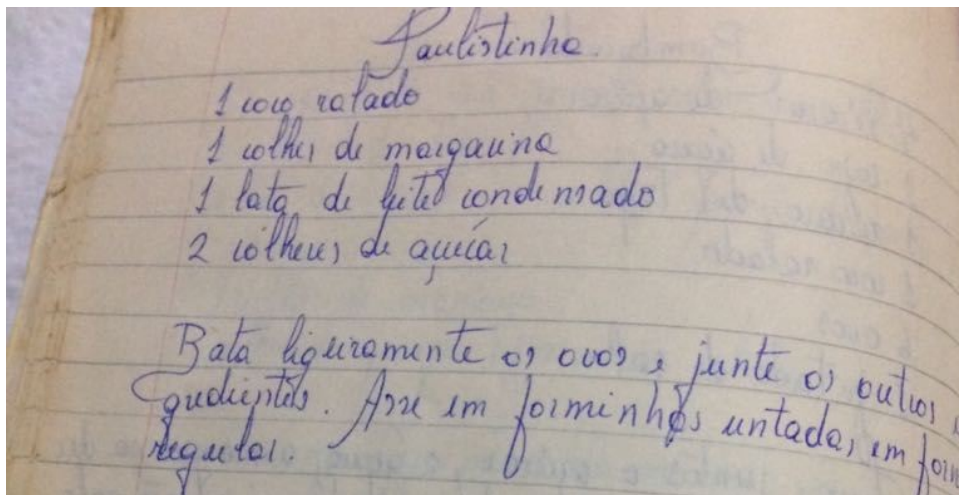 Paulistinha
1 coco ralado
1 colher de margarina
1 lata de leite condensado
2 colheres de açúcar
Bata ligeiramente os ovos e junte os outros
gredientes. Asse em forminhas untadas, em forn
regular.